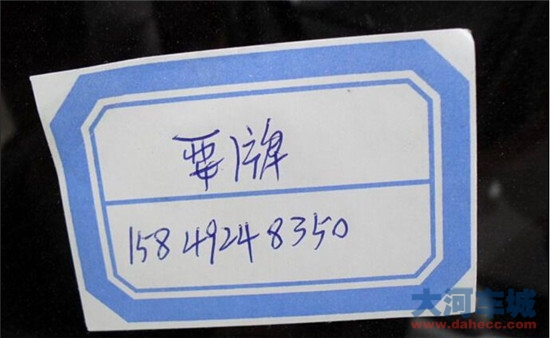 要牌
15849248350
大河车城
www.dahecc.com